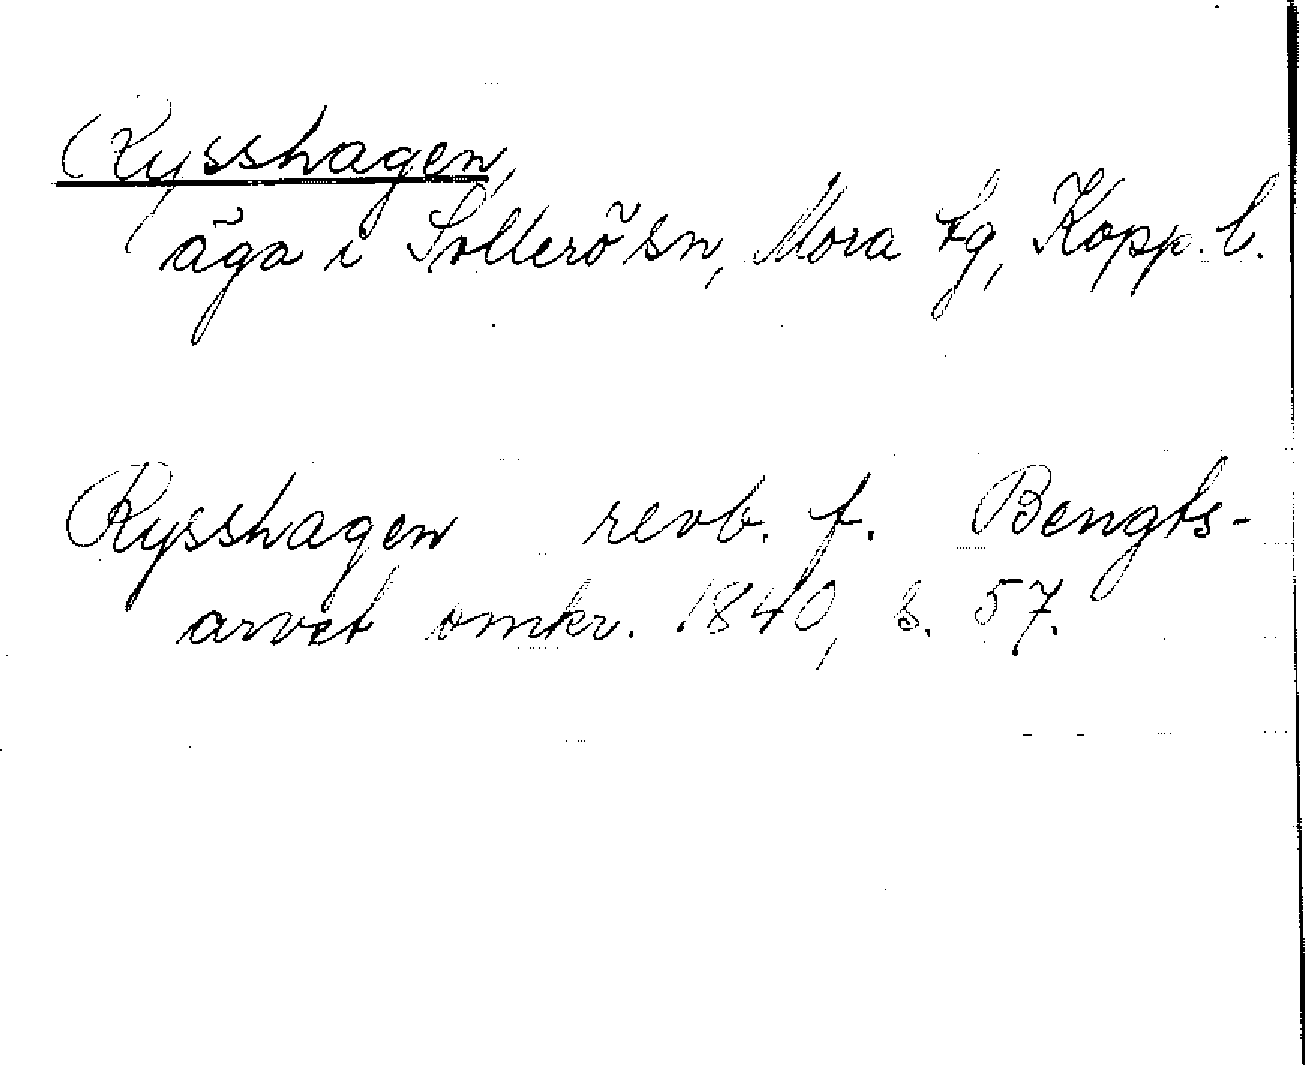 Rysshagen,
äga i Sollerö sn, Mora tg, Kopp. l.
Rysshagen revb. f. Bengts-
arvet omkr. 1840, s. 57.